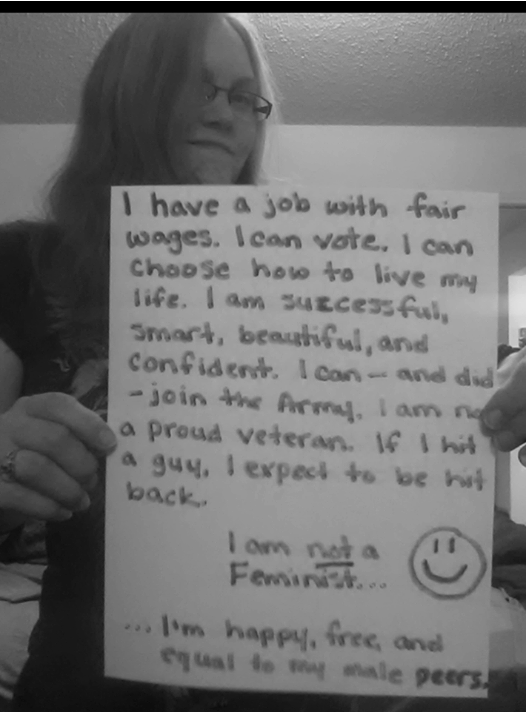 I have a job with fair
wages. I can vote. I can
choose how to live my
life. I am successful,
smart, beautiful, and
confident. I can – and did
– join the Army. I am
a proud veteran. If I hit
a guy, I expect to be hit
back.
I am not a
Feminist...
... I'm happy, free, and
equal to my male peers.